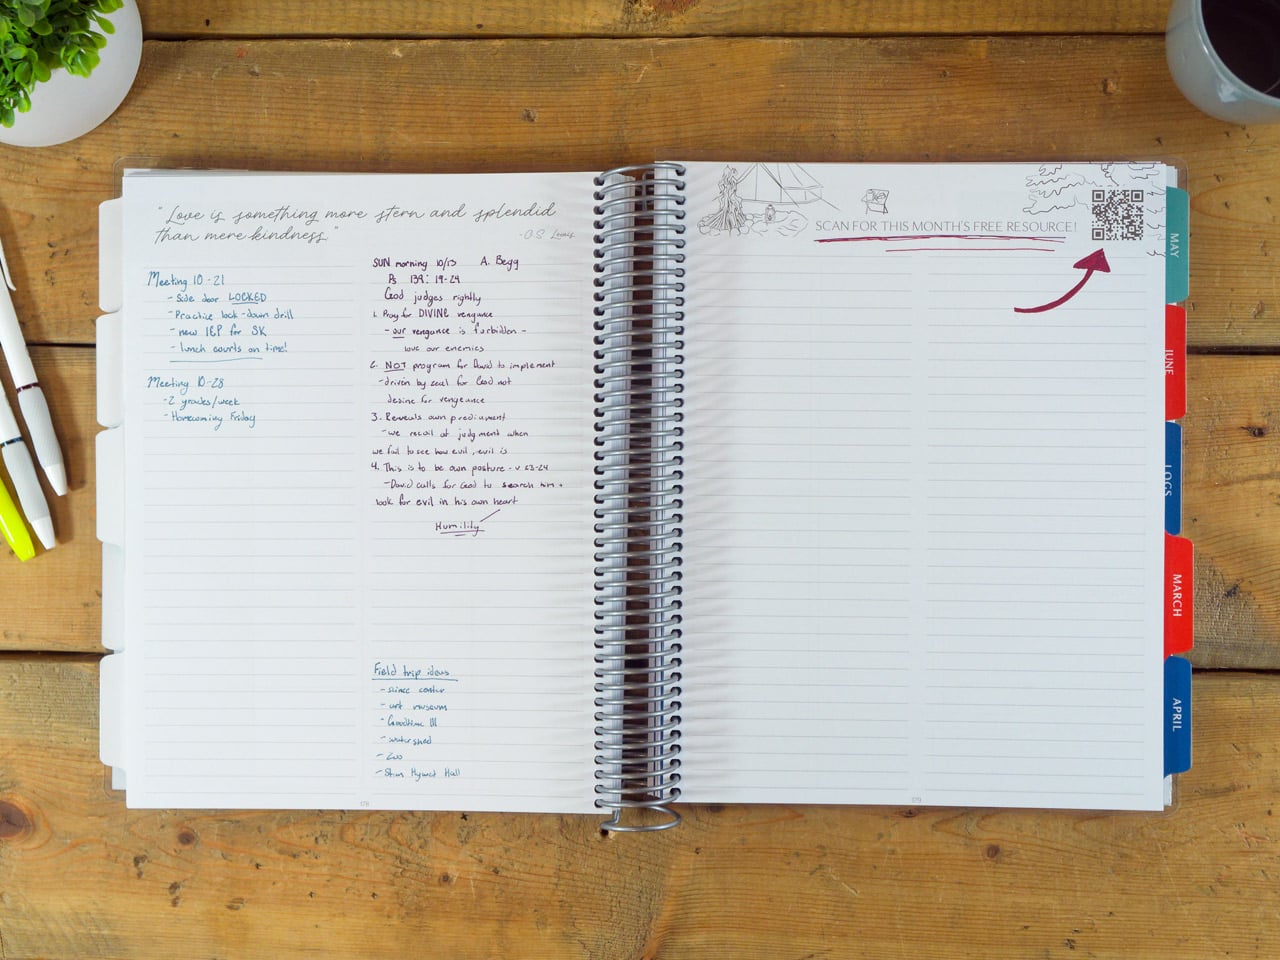 "Love is something more stern and splendid
than mere kindness."
-C.S. Lewis
Meeting 10-21
- Side door LOCKED
- Practice lock-down drill
- new IEP for SK
- lunch counts on time!
Meeting 10-28
- 2 grades/week
- Homecoming Friday
SUN morning 10/13 A. Begg
Ps 139: 19-24
God judges rightly
1. Pray for DIVINE vengance
- our vengance is forbidden -
love our enemies
2. NOT program for David to implement
- driven by zeal for God not
desire for vengeance
3. Reveals own predicament
- we recoil at judgment when
we fail to see how evil, evil is
4. This is to be our posture - v 23-24
- David calls for God to search him +
look for evil in his own heart
Humility
Field trip ideas
- science center
- art museum
- Goodtime III
- watershed
- Zoo
- Stan Hywet Hall
178
SCAN FOR THIS MONTH'S FREE RESOURCE!
179
MAY
JUNE
LOGS
MARCH
APRIL